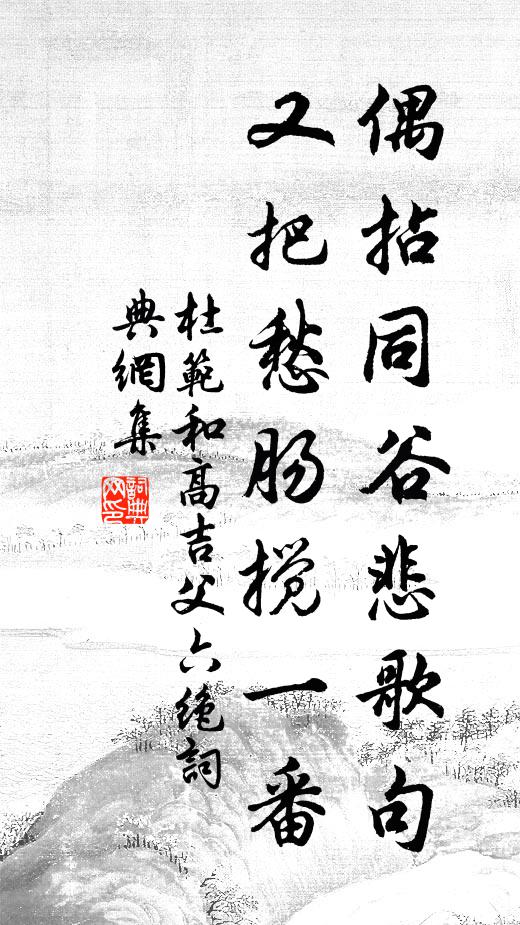 偶拈同谷悲歌句
又把愁肠搅一番
杜範和高吉父六绝詞
典網集
詞典网印